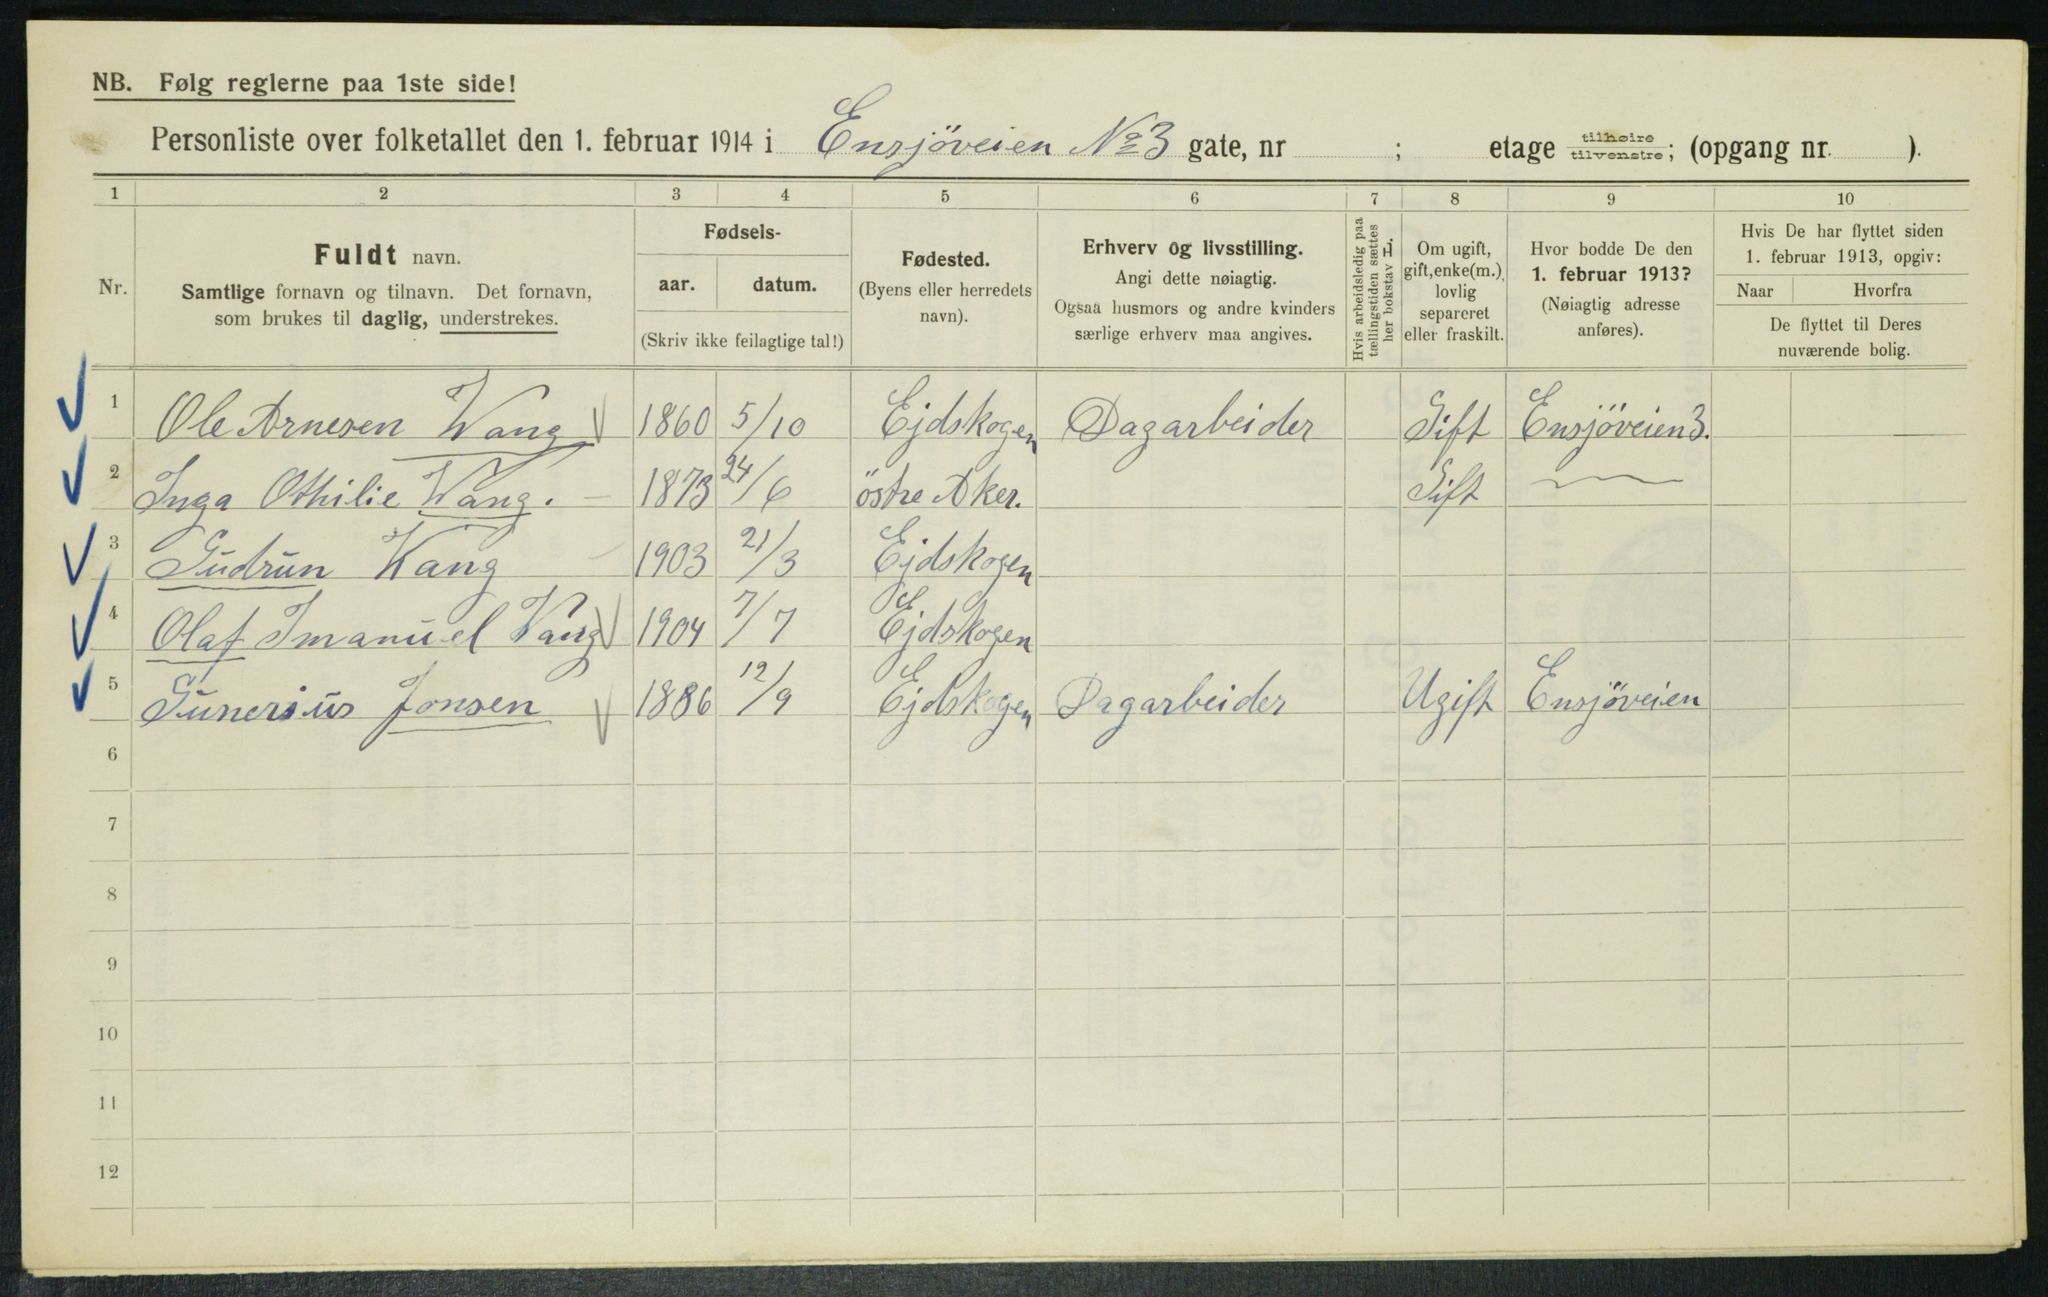 NB. Følg reglerne paa 1ste side!
Personliste over folketallet den 1. februar 1914 i Ensjöveien No 3 gate, nr ; etage tilhøire tilvenstre; (opgang nr. ).
1 2 3 4 5 6 7 8 9 10
Nr.
Fuldt navn.
Samtlige fornavn og tilnavn. Det fornavn,
som brukes til daglig, understrekes.
Fødsels-
aar. datum.
(Skriv ikke feilagtige tal!)
Fødested.
(Byens eller herredets
navn).
Erhverv og livsstilling.
Angi dette nøiagtig.
Ogsaa husmors og andre kvinders
særlige erhverv maa angives.
Hvis arbeidsledig paa
tællingstiden sættes
her bokstav
Om ugift,
gift, enke(m.),
lovlig
separeret
eller fraskilt.
Hvor bodde De den
1. februar 1913?
(Nøiagtig adresse
anføres).
Hvis De har flyttet siden
1. februar 1913, opgiv:
Naar Hvorfra
De flyttet til Deres
nuværende bolig.
1 Ole Arnesen Wang 1860 5/10 Ejdskogen Dagarbeider Gift Ensjöveien 3.
2 Inga Othilie Wang. 1873 24/6 östre Aker. Gift
3 Gudrun Wang 1903 21/3 Ejdskogen
4 Olaf Imanuel Wang 1904 7/7 Ejdskogen
5 Gunerius Jonsen 1886 12/9 Ejdskogen Dagarbeider Ugift Ensjöveien
6
7
8
9
10
11
12